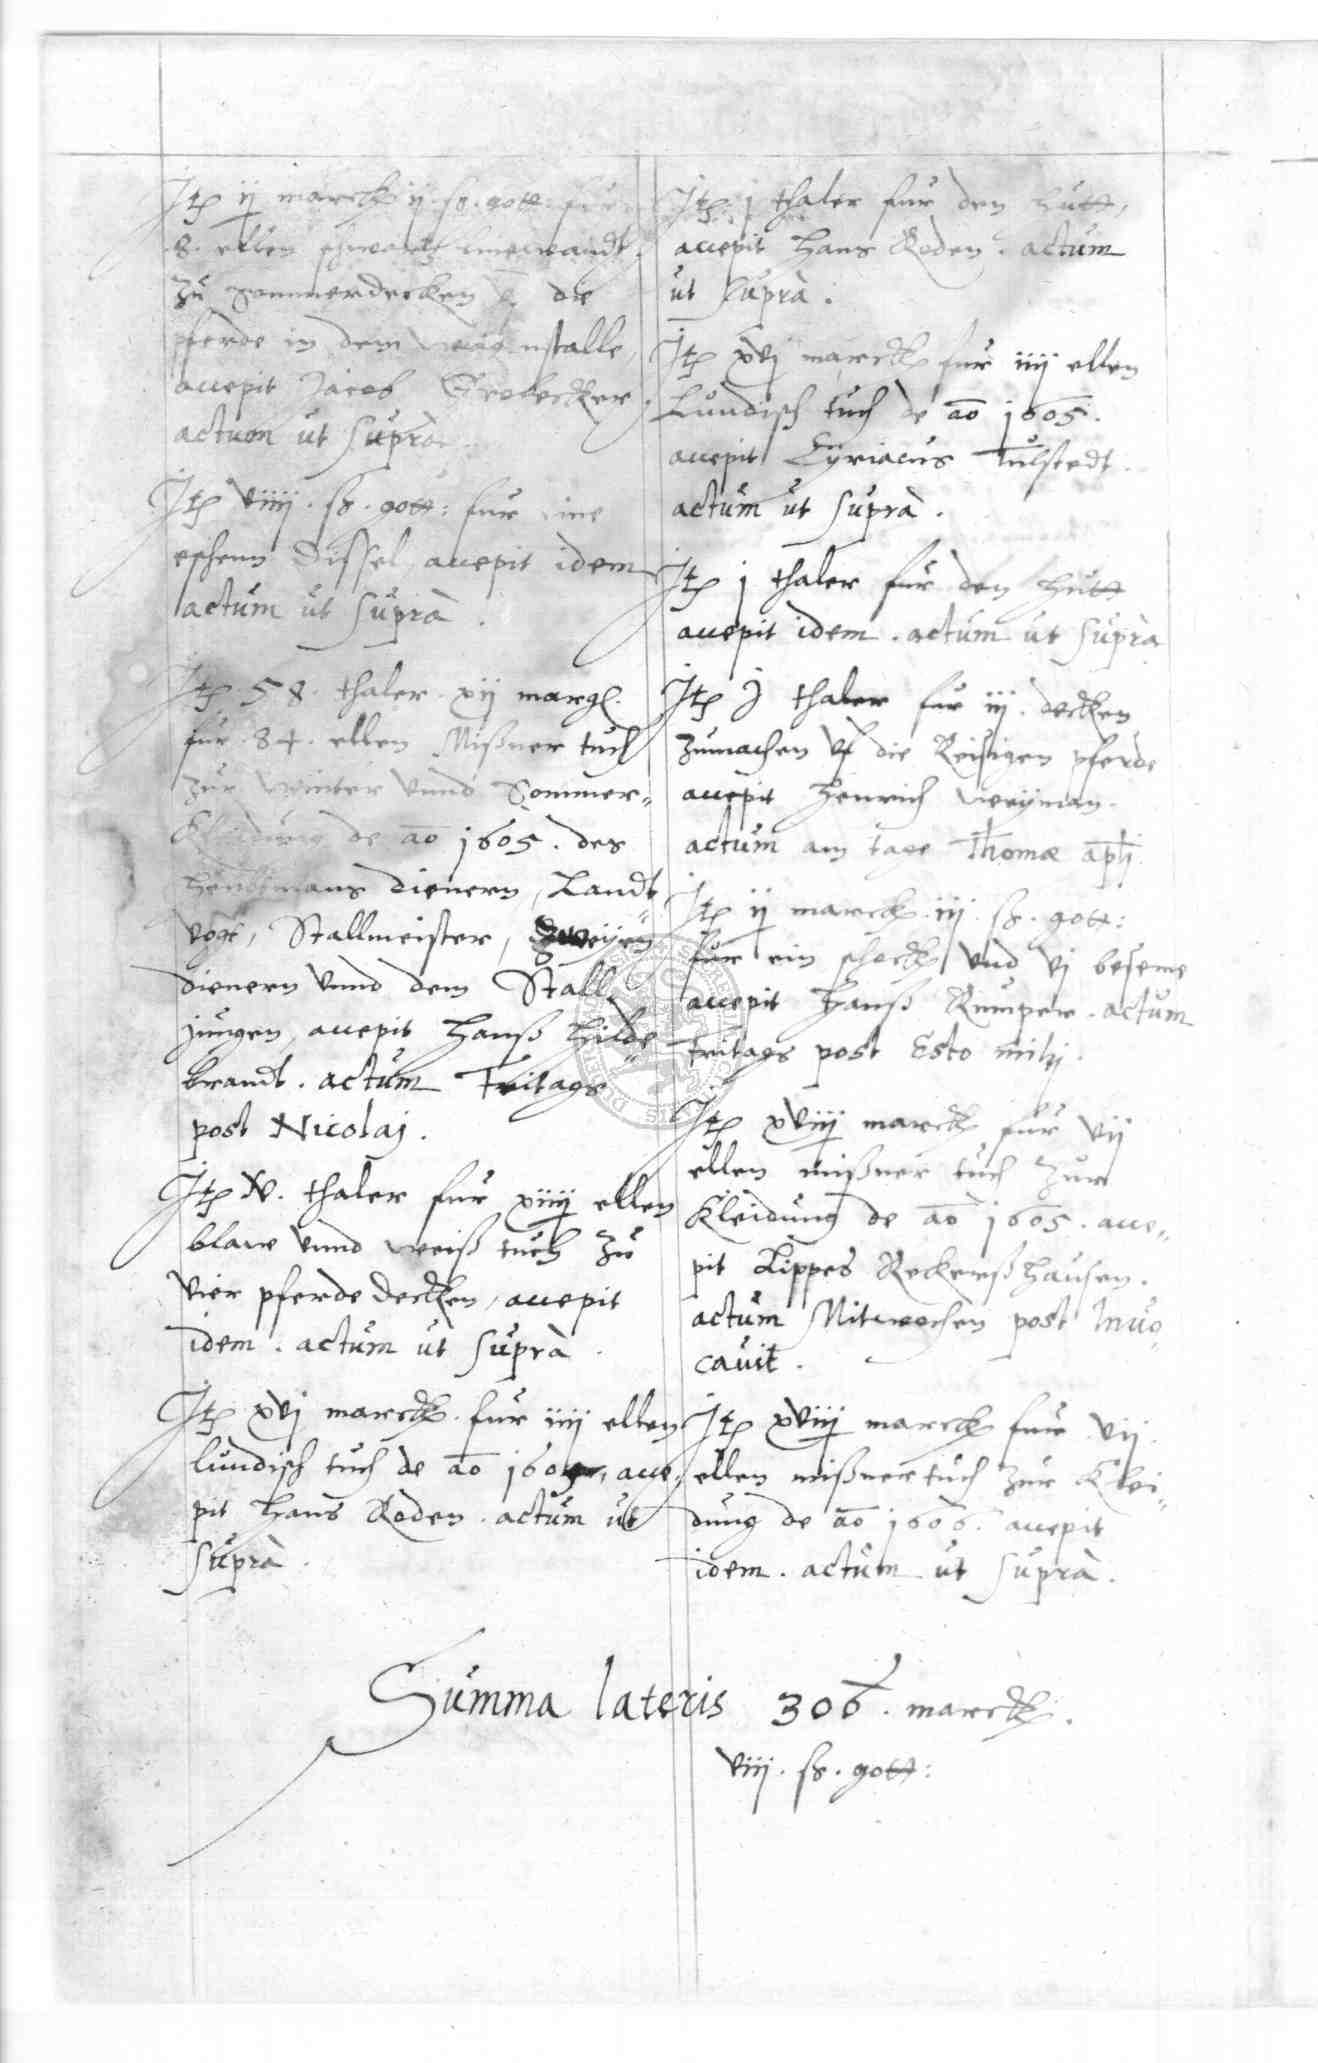 It(em) ij marck ij ß. gott: für
8. ellen schwartz linewandt
zu Sommerdecken die
pferde in dem wagenstalle,
accepit Jacob Grobecker.
actum ut suprà.
It(em) viiij. ß. gott: fur eine
eschenn Dissel, accepit idem
actum ut suprà.
It(em) 58. thaler. xij margl.
für 84. ellen Mißner tuch
zur winter vnnd Sommer-
Kleidung de ao 1605. des
heubtmans dienern, Landt
vogt, Stallmeister, zweyen
dienern vnnd dem Stall
jungen, accepit Hanß Hilde
brandt. actum Fritags
post Nicolaj.
It(em) x. thaler für xiiij ellen
blaw vnnd weiß tuch zu
vier pferde decken, accepit
idem. actum ut suprà.
It(em) xvj marck. fur iiij ellen
lundisch tuch de ao 1605, acce-
pit Hans Roden. actum ut
suprà.
It(em) j thaler fur den hutt,
accepit Hans Roden. actum
ut suprà.
It(em) xvj marck fur iiij ellen
Lundisch tuch de ao 1605.
accepit Cÿriacus Tulstedt.
actum ut suprà.
It(em) j thaler für den hutt
accepit idem. actum ut suprà
It(em) J thaler fur iij. decken
zumachen vf die Reisigen pferde
accepit Henrich Weyman.
actum am tage Thomæ apli.
It(em) ij marck. iij ß. gott:
für ein schock vnd vj beseme
accepit Hanß Rumper. actum
Fritags post Esto mihj.
It(em) xviij marck für vij
ellen mißner tuch zur
Kleidung de ao 1605. acce-
pit Lippes Reckerßhausen.
actum Mitwochen post Invo
cavit.
It(em) xviij marck fur vij.
ellen mißner tuch zur Klei-
dung de ao 1606. accepit
idem. actum ut suprà.
Summa lateris 306. marck.
viij. ß. gott: